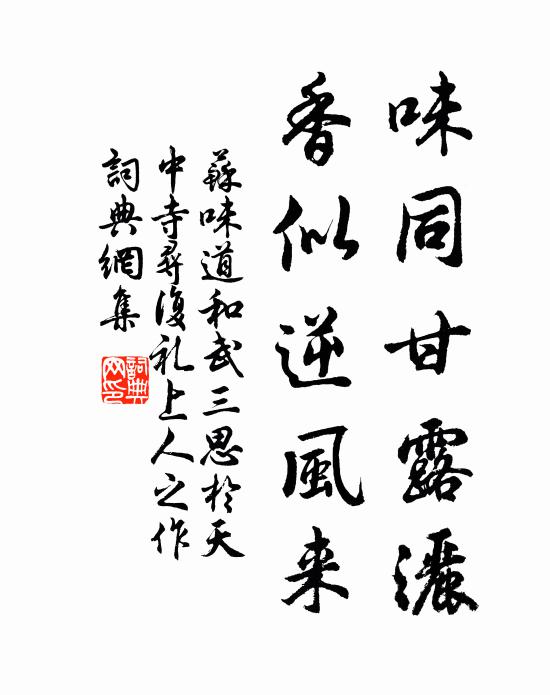 味同甘露灑
香似逆風来
蘇味道和武三思於天
中寺尋復礼上人之作
詞典網集
詞典
网印